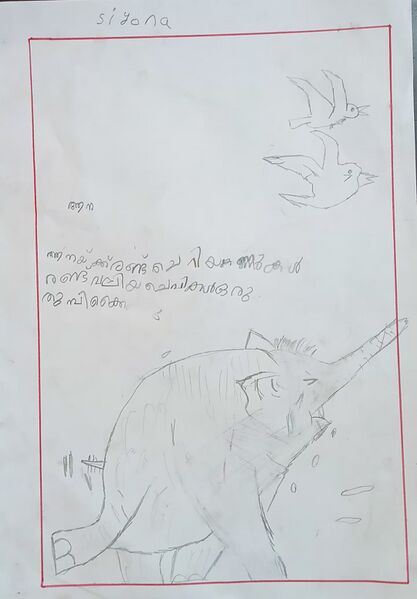 siyona
ആന
ആനയ്ക്ക് രണ്ട് ചെറിയ കണ്ണുകൾ
രണ്ട് വലിയ ചെവികൾ ഒരു
തുമ്പിക്കൈ